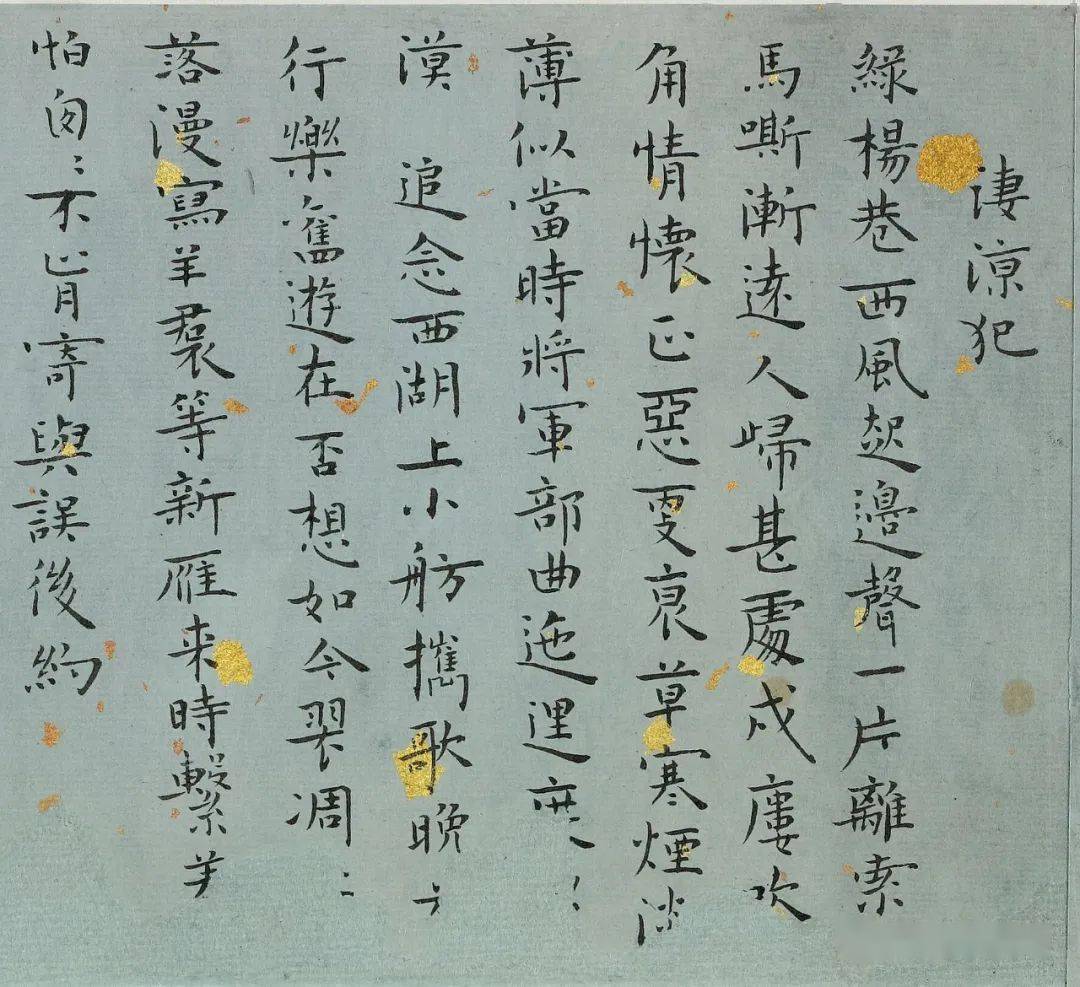 淒涼犯
綠楊巷西風起邊聲一片離索
馬嘶漸遠人歸甚處戍廔吹
角情懷正惡更衰草寒煙淡
薄似當時將軍部曲迤邐度
漠 追念西湖上小舫攜歌晚
行樂舊遊在否想如今翠凋
落漫寫羊裠等新雁来時繫
怕匆〻不肯寄與誤後約